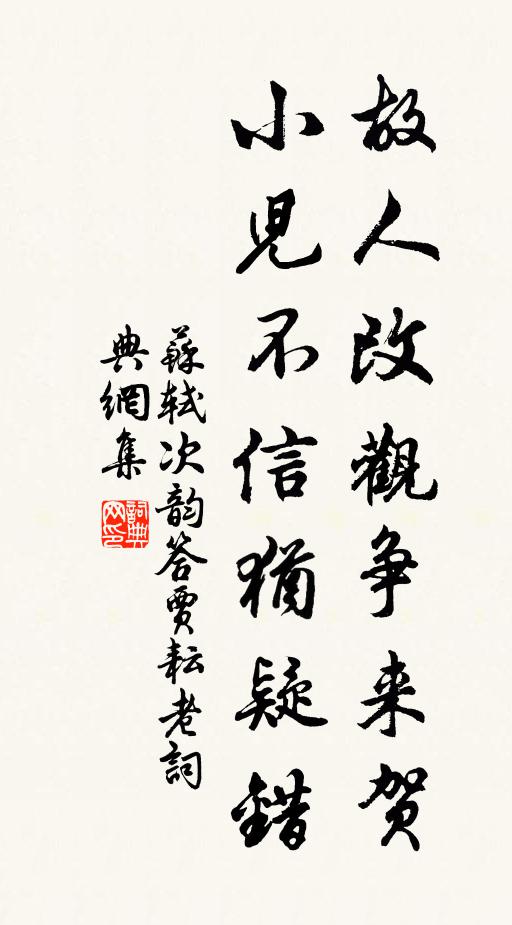 故人改觀争来贺
小兒不信猶疑錯
蘇軾次韵答賈耘老詞
典網集
詞典
网印